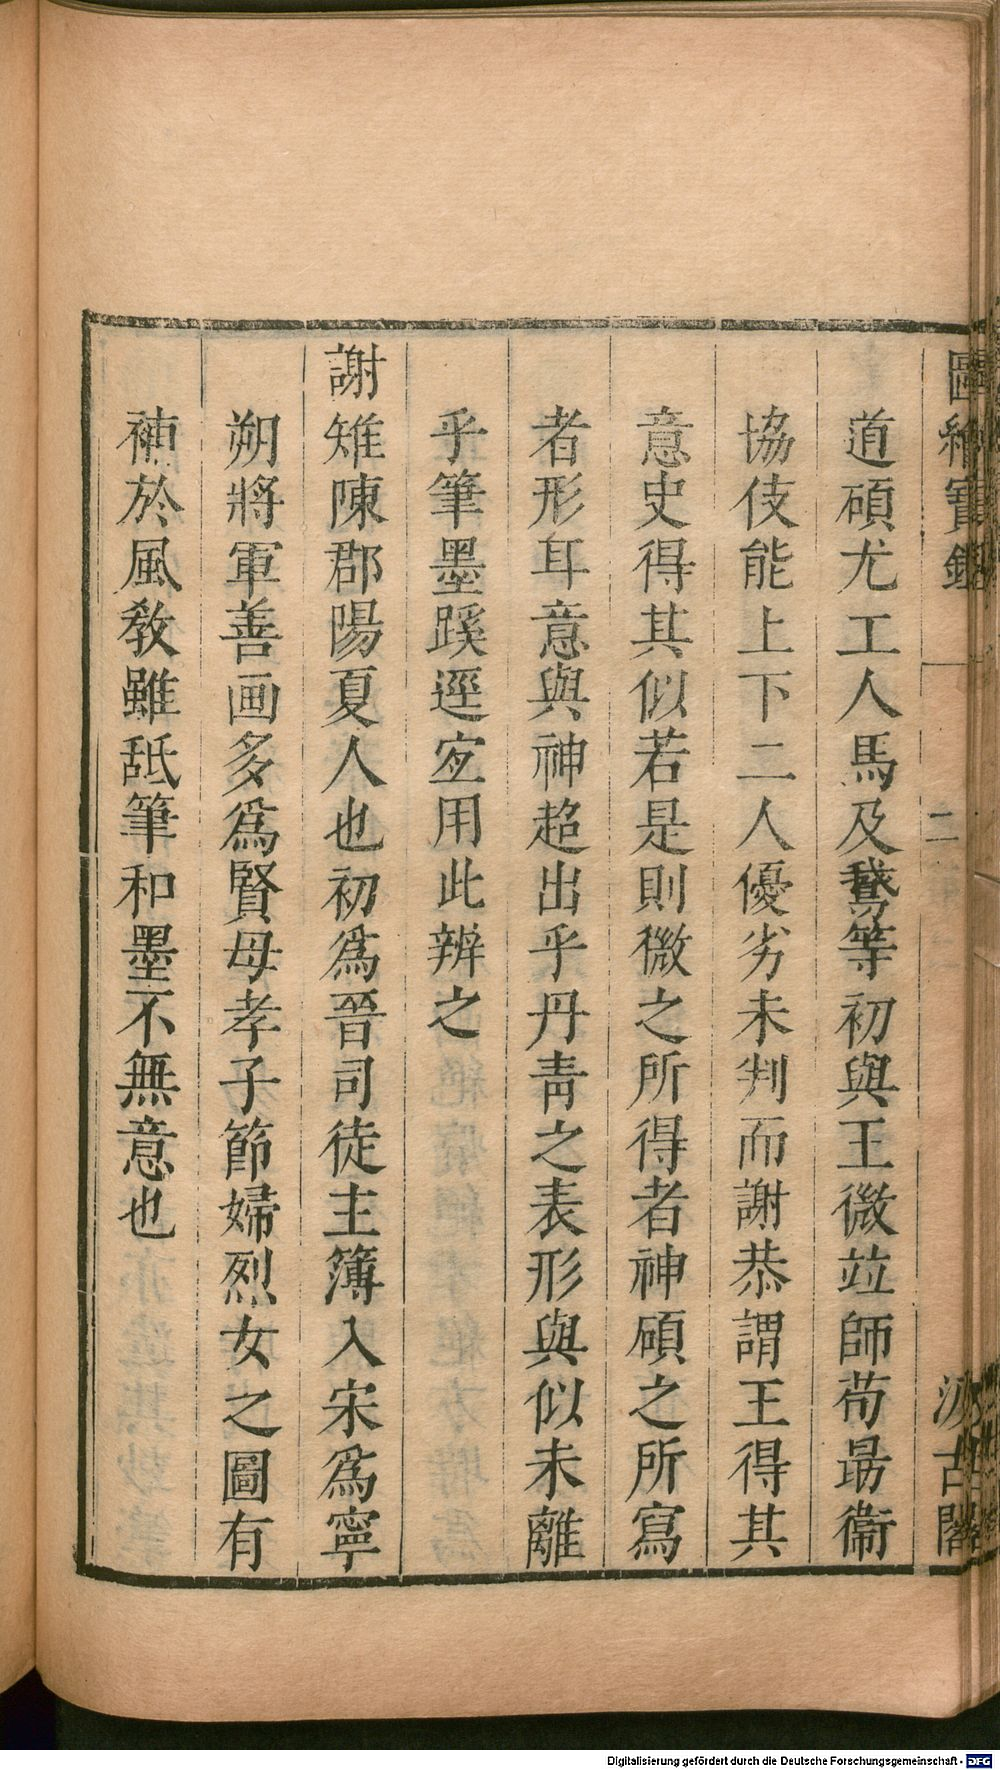 圖繪寶鑑 二 汲古閣
道碩尤工人馬及鵞等初與王微竝師荀勗衞
協伎能上下二人優劣未判而謝恭謂王得其
意史得其似若是則微之所得者神碩之所寫
者形耳意與神超出乎丹靑之表形與似未離
乎筆墨蹊逕定用此辨之
謝雉陳郡陽夏人也初爲晉司徒主簿入宋爲寧
朔將軍善画多爲賢母孝子節婦烈女之圖有
補於風敎雖舐筆和墨不無意也
Digitalisierung gefördert durch die Deutsche Forschungsgemeinschaft - DFG